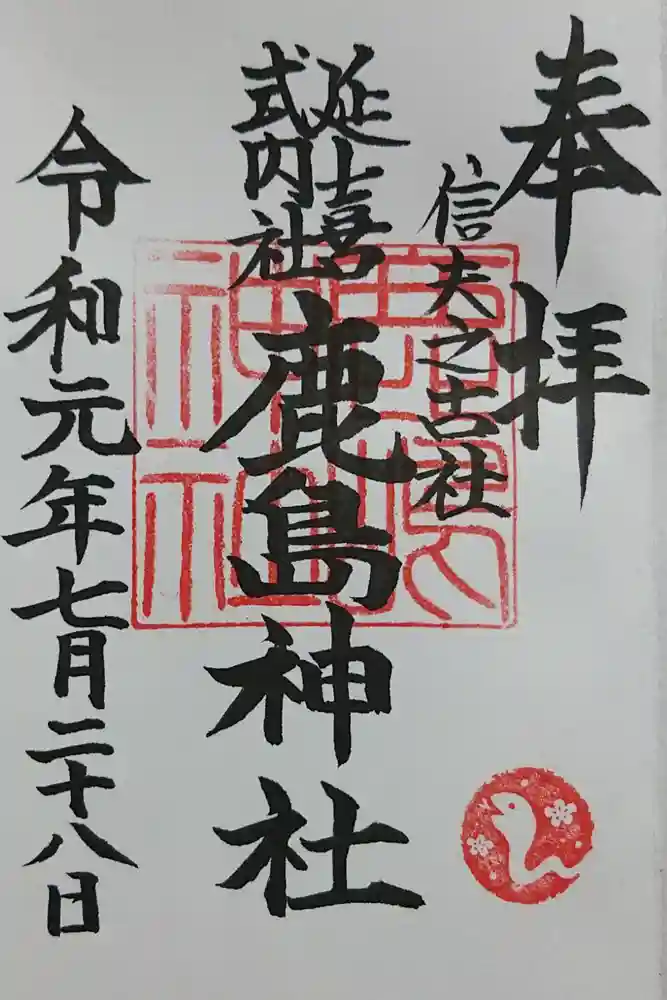 奉拝
信夫之古社
延喜
式内社
鹿島神社
令和元年七月二十八日